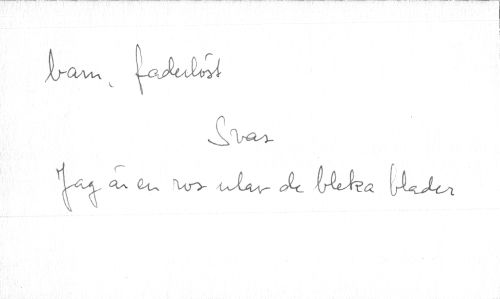 barn, faderlöst
Svar
Jag är en ros utav de bleka blader